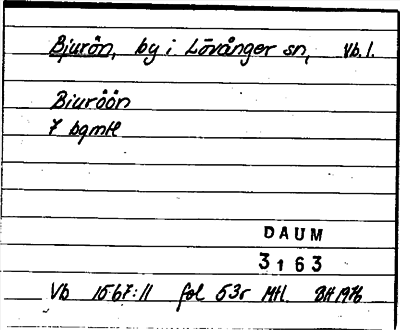 Bjurön, by i Lövånger sn, Vb. l.
Biuröön
7 bgmtl
DAUM
3163
Vb 1567:11 fol 53r Mtl. BH 1976